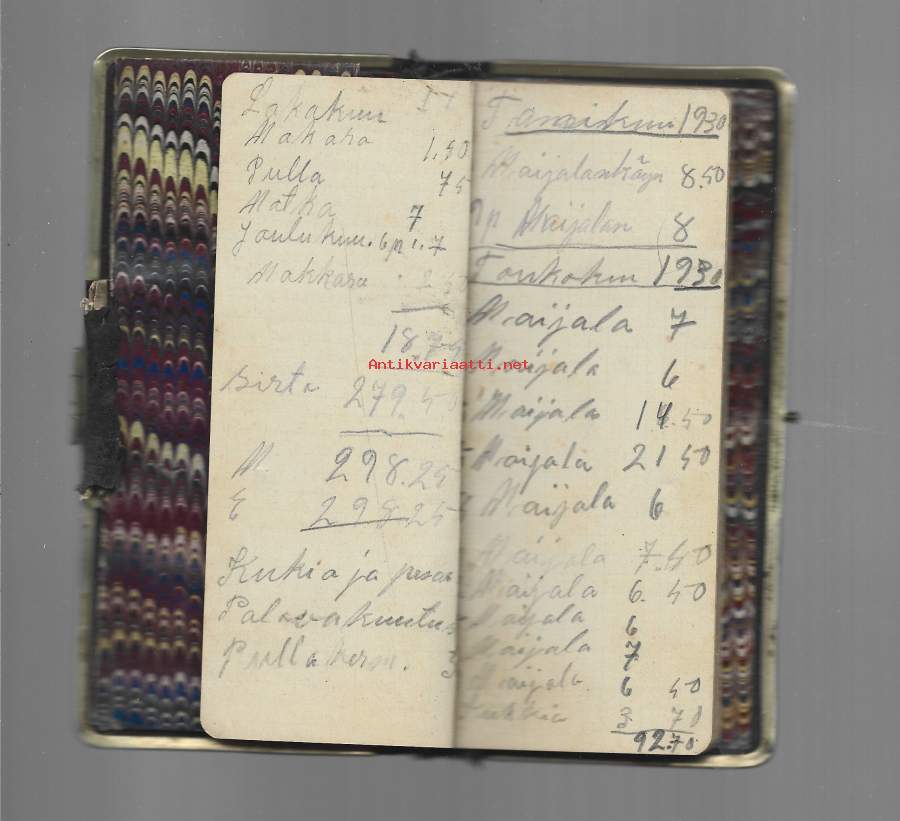 Lokakuu
Makara 1.50
Pulla 75
Matka 7
Joulukuu. 6 p. 7
Makkara 2.50
18.75
Siirto 279.50
M 298.25
E 298.25
Kukia ja
Palovakuutus
Pulla 3
Tamikuu 1930
Maijalankäyn 8.50
Maijalan 8
Toukokuu 1930
Maijala 7
Maijala 6
Maijala 14.50
Maijala 21 50
Maijala 6
Maijala 7.50
Maijala 6.50
Maijala 6
Maijala 7
Maijala 6 50
Kukkia 3 70
92.70
Antikvariaatti.net